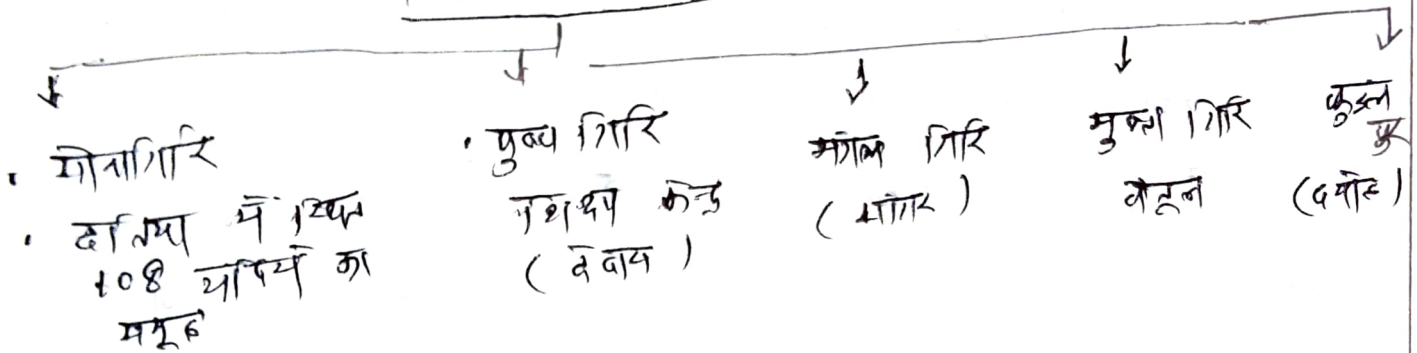 • सोनागिरि
• दतिया में स्थित
108 मंदिरों का
समूह
• पुष्प गिरि
(देवास)
मंगल गिरि
(सागर)
मुक्ता गिरि
बैतूल
कुंडल
पुर
(दमोह)